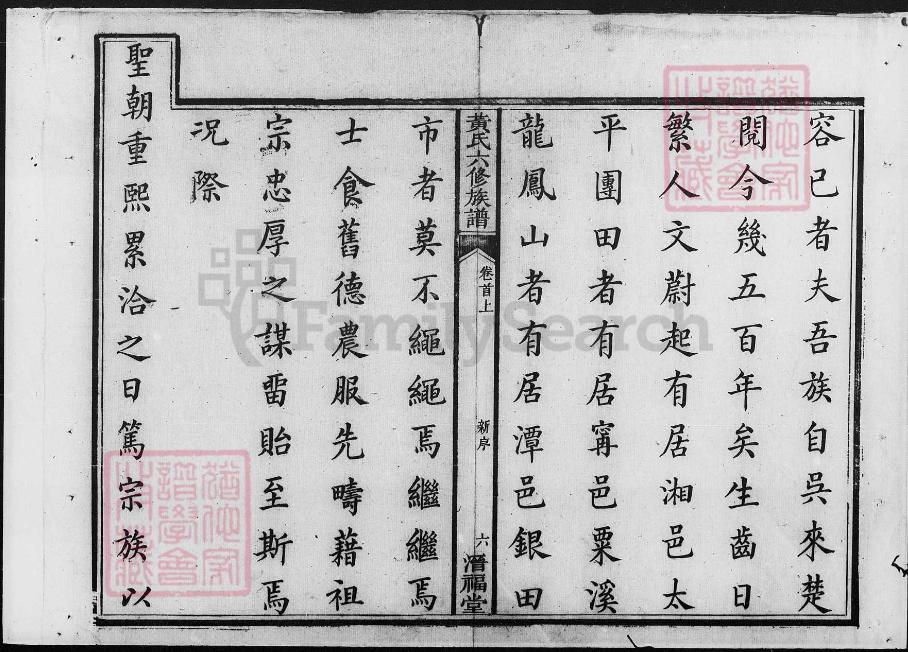 容已者夫吾族自吳來楚
閱今幾五百年矣生齒日
繁人文蔚起有居湘邑太
平團田者有居甯邑粟溪
龍鳳山者有居潭邑銀田
黃氏六修族譜
卷首上
新序
六
潛福堂
市者莫不繩繩焉繼繼焉
士食舊德農服先疇藉祖
宗忠厚之謀畱貽至斯焉
况際
聖朝重熙累洽之日篤宗族以
FamilySearch